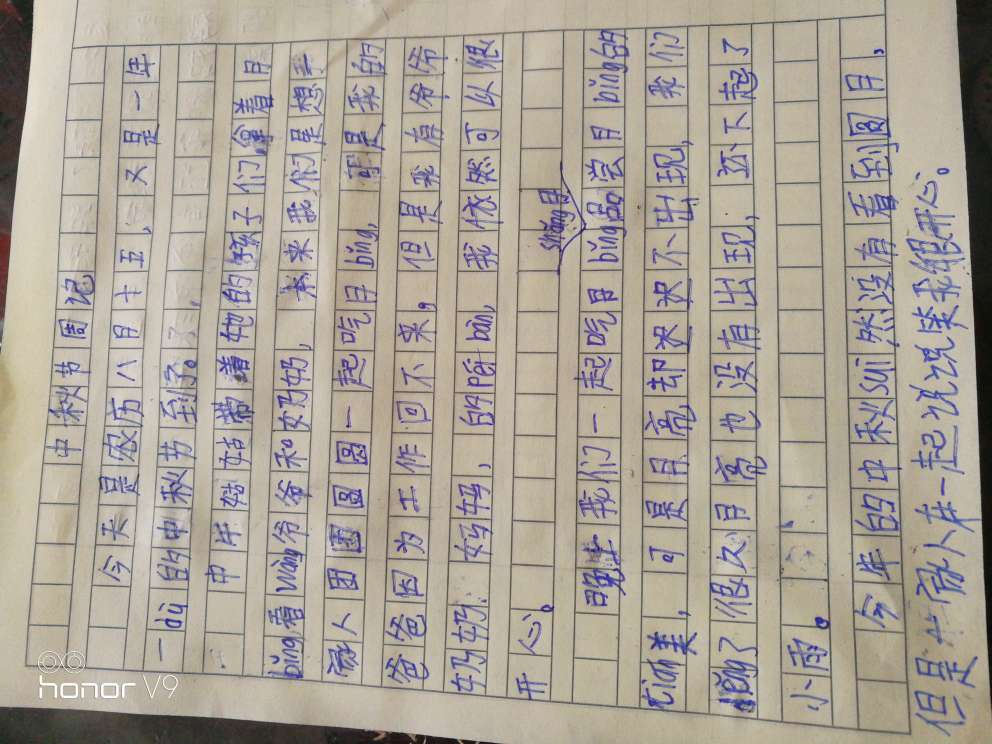 中秋节周记
今天是农历八月十五,又是一年
一dù的中秋节到了。
中午姑姑带着她的孩子们拿着月
bǐng看wàng爷爷和奶奶,本来我们是想
一家人团团圆圆一起吃月bǐng,可是我的
爸爸因为工作回不来,但是我有爷爷
奶奶、妈妈,的péi bàn,我依然可以很
开心。
晚上我们一起吃月bǐng品尝月bǐng的
shǎng月
tián美,可是月亮却迟迟不出现,我们
děng了很久月亮也没有出现,还下起了
小雨。
今年的中秋suī然没有看到圆月,
但是一家人在一起说说笑笑很开心。
honor V9